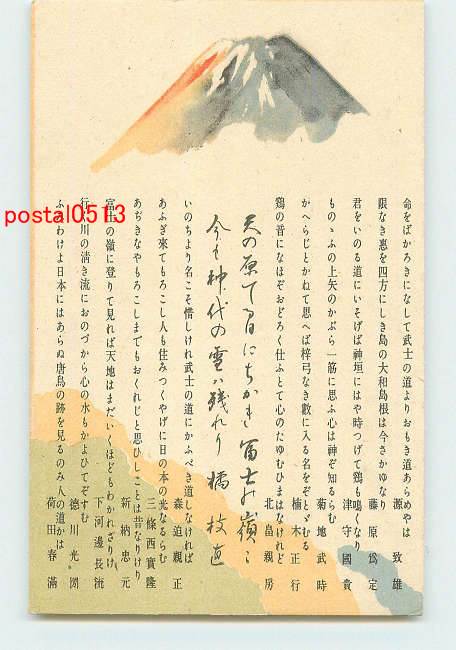 命をばかろきになして武士の道よりおもき道あらめやは
源致雄
限なき恵を四方にしき島の大和島根は今さかゆなり
藤原為定
君をいのる道にいそげば神垣にはや時つげて鶏も鳴くなり
津守國貴
ものゝふの上矢のかぶら一筋に思ふ心は神ぞ知るらむ
菊地武時
かへらじとかねて思へば梓弓なき数に入る名をぞとゞむる
楠木正行
鶏の音になほぞおどろく仕ふとて心のたゆむひまはなけれど
北畠親房
天の原てる日にちかき富士の嶺に
今も神代の雪は残れり 橘枝直
いのちより名こそ惜しけれ武士の道にかふべき道しなければ
森迫親正
あふぎ來てもろこし人も住みつくやげに日の本の光なるらむ
三條西實隆
あぢきなやもろこしまでもおくれじと思ひしことは昔なりけり
新納忠元
富士の嶺に登りて見れば天地はまだいくほどもわかれざりけり
下河邊長流
行く川の清き流におのづから心の水もかよひてぞすむ
德川光圀
ふみわけよ日本にはあらぬ唐鳥の跡を見るのみ人の道かは
荷田春滿
postal0513